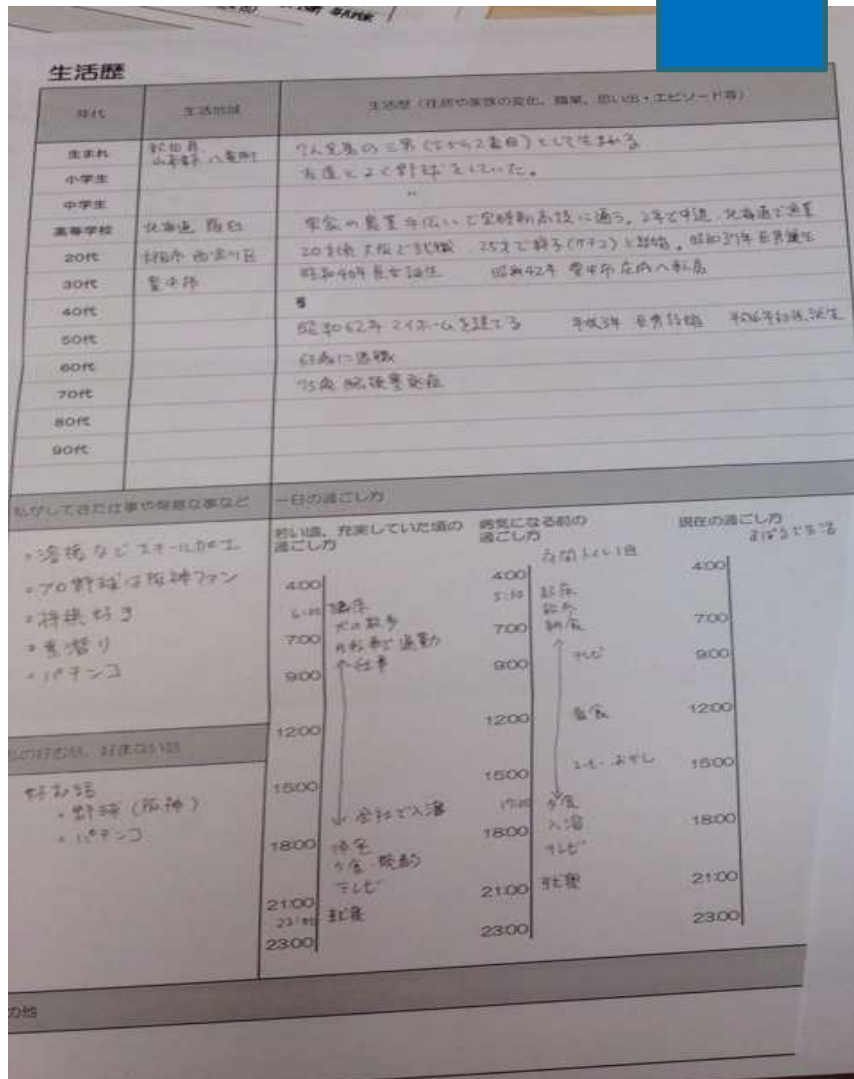 生活歴
年代 生活地域 生活歴(住居や家族の変化、職業、思い出・エピソード等)
生まれ 秋田県 7人兄弟の三男(上から2番目)として生まれる
山本郡 八竜町
小学生 友達とよく野球をしていた。
中学生 〃
高等学校 北海道 実家の農業手伝いで定時制高校に通う。2年で中退、北海道で漁業
20代 20才頃 大阪で就職 25才で 結婚。昭和37年 長男誕生
30代 豊中市 昭和40年長女誕生 昭和42年 豊中市庄内へ転居
40代
50代 昭和62年 マイホームを建てる 平成3年 長男結婚
60代 63歳に退職
70代 75歳 脳梗塞発症
80代
90代
私がしてきた仕事や得意な事など
・溶接などスチール加工
・プロ野球は阪神ファン
・将棋好き
・素潜り
・パチンコ
私の好む話、好まない話
好む話
・野球(阪神)
・パチンコ
一日の過ごし方
若い頃、充実していた頃の過ごし方
4:00
6:00 起床
犬の散歩
7:00 自転車で通勤
9:00 仕事
12:00
15:00
会社で入浴
18:00 帰宅
夕食 晩酌
テレビ
21:00
22:00 就寝
23:00
病気になる前の過ごし方
4:00
5:30 起床
散歩
7:00 朝食
9:00 テレビ
12:00 昼食
15:00 おかし
17:00 夕食
18:00 入浴
テレビ
21:00 就寝
23:00
現在の過ごし方
4:00
7:00
9:00
12:00
15:00
18:00
21:00
23:00
の他